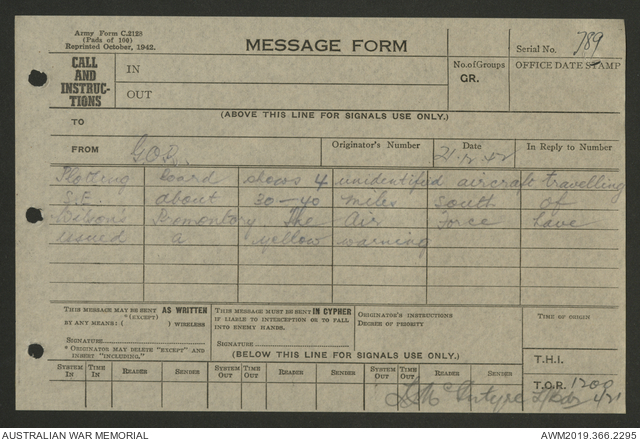 Army Form C.2128
(Pads of 100)
Reprinted October, 1942.
MESSAGE FORM
Serial No. 789
CALL AND INSTRUC-TIONS
IN
OUT
No. of Groups
GR.
OFFICE DATE STAMP
(ABOVE THIS LINE FOR SIGNALS USE ONLY.)
TO
FROM
Originator's Number
Date
In Reply to Number
Plotting board shows 4 unidentified aircraft travelling
S.E. about 30-40 miles South of
Wilsons Promontory The Air Force have
issued a yellow warning
THIS MESSAGE MAY BE SENT AS WRITTEN
*(EXCEPT)
BY ANY MEANS: ( ) WIRELESS
SIGNATURE
* ORIGINATOR MAY DELETE "EXCEPT" AND INSERT "INCLUDING."
THIS MESSAGE MUST BE SENT IN CYPHER
IF LIABLE TO INTERCEPTION OR TO FALL
INTO ENEMY HANDS.
SIGNATURE
ORIGINATOR'S INSTRUCTIONS
DEGREE OF PRIORITY
TIME OF ORIGIN
(BELOW THIS LINE FOR SIGNALS USE ONLY.)
T.H.I.
SYSTEM IN TIME IN READER SENDER SYSTEM OUT TIME OUT READER SENDER SYSTEM OUT TIME OUT READER SENDER
T.O.R. 1200
McIntyre
AUSTRALIAN WAR MEMORIAL
AWM2019.366.2295